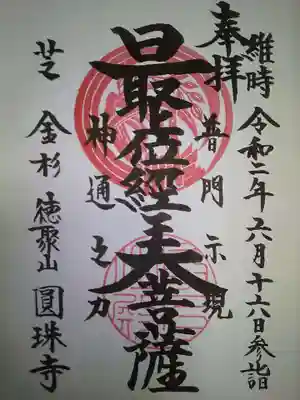 維時 令和二年六月十六日参詣
奉拝
普門示現
最位經王大菩薩
神通之力
芝 金杉 徳聚山 圓珠寺